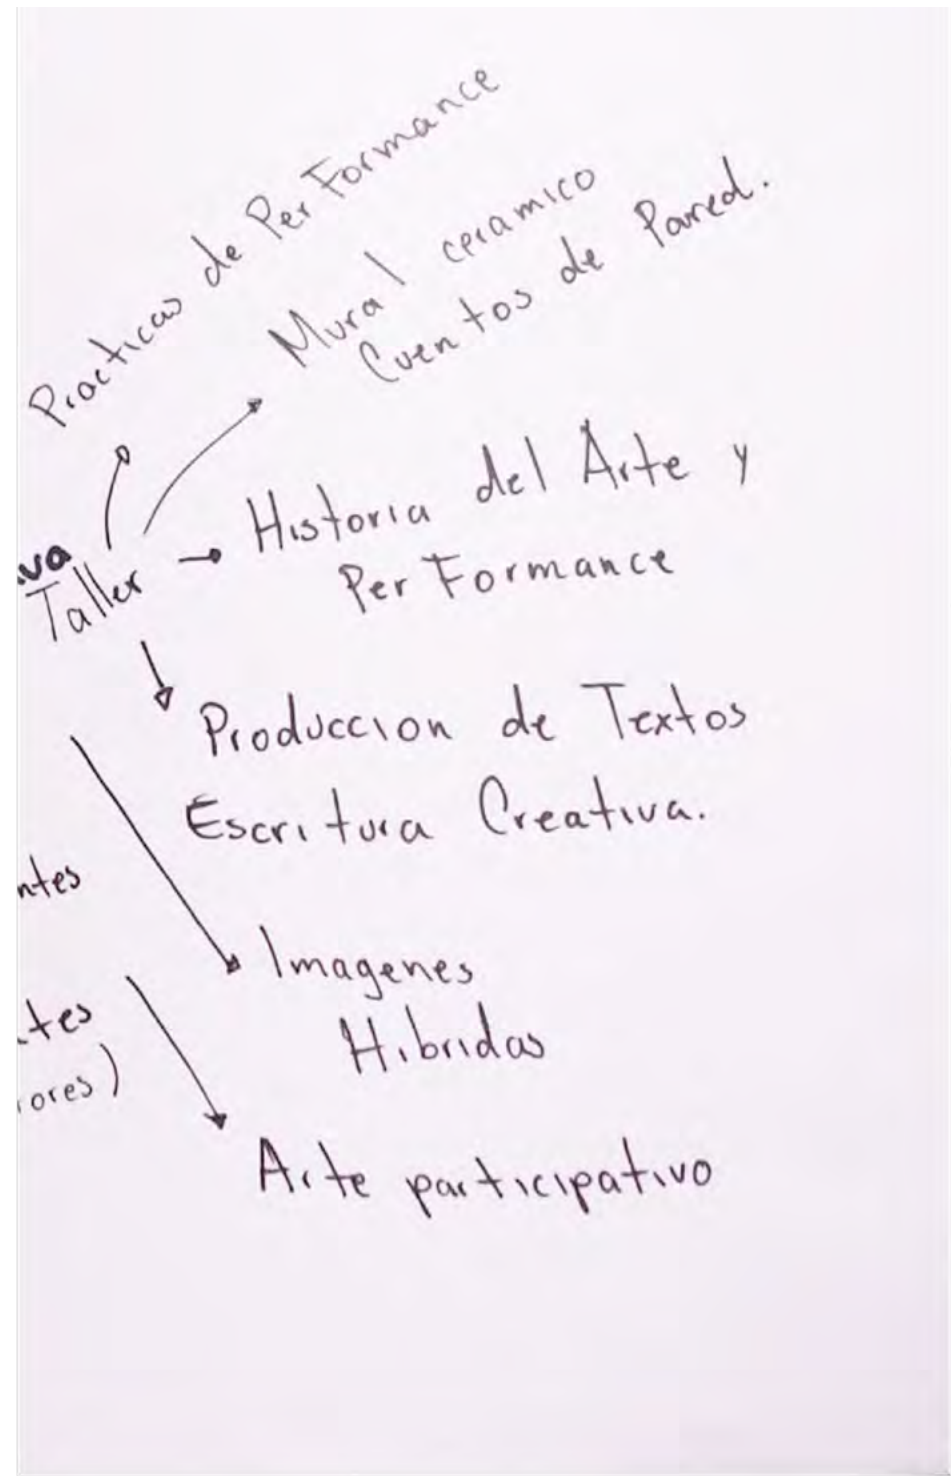 Practicas de PerFormance
Mural ceramico
Cuentos de Pared.
Historia del Arte y
PerFormance
iva
Taller
Produccion de Textos
Escritura Creativa.
ntes
Imagenes
Hibridas
tes
ores)
Arte participativo